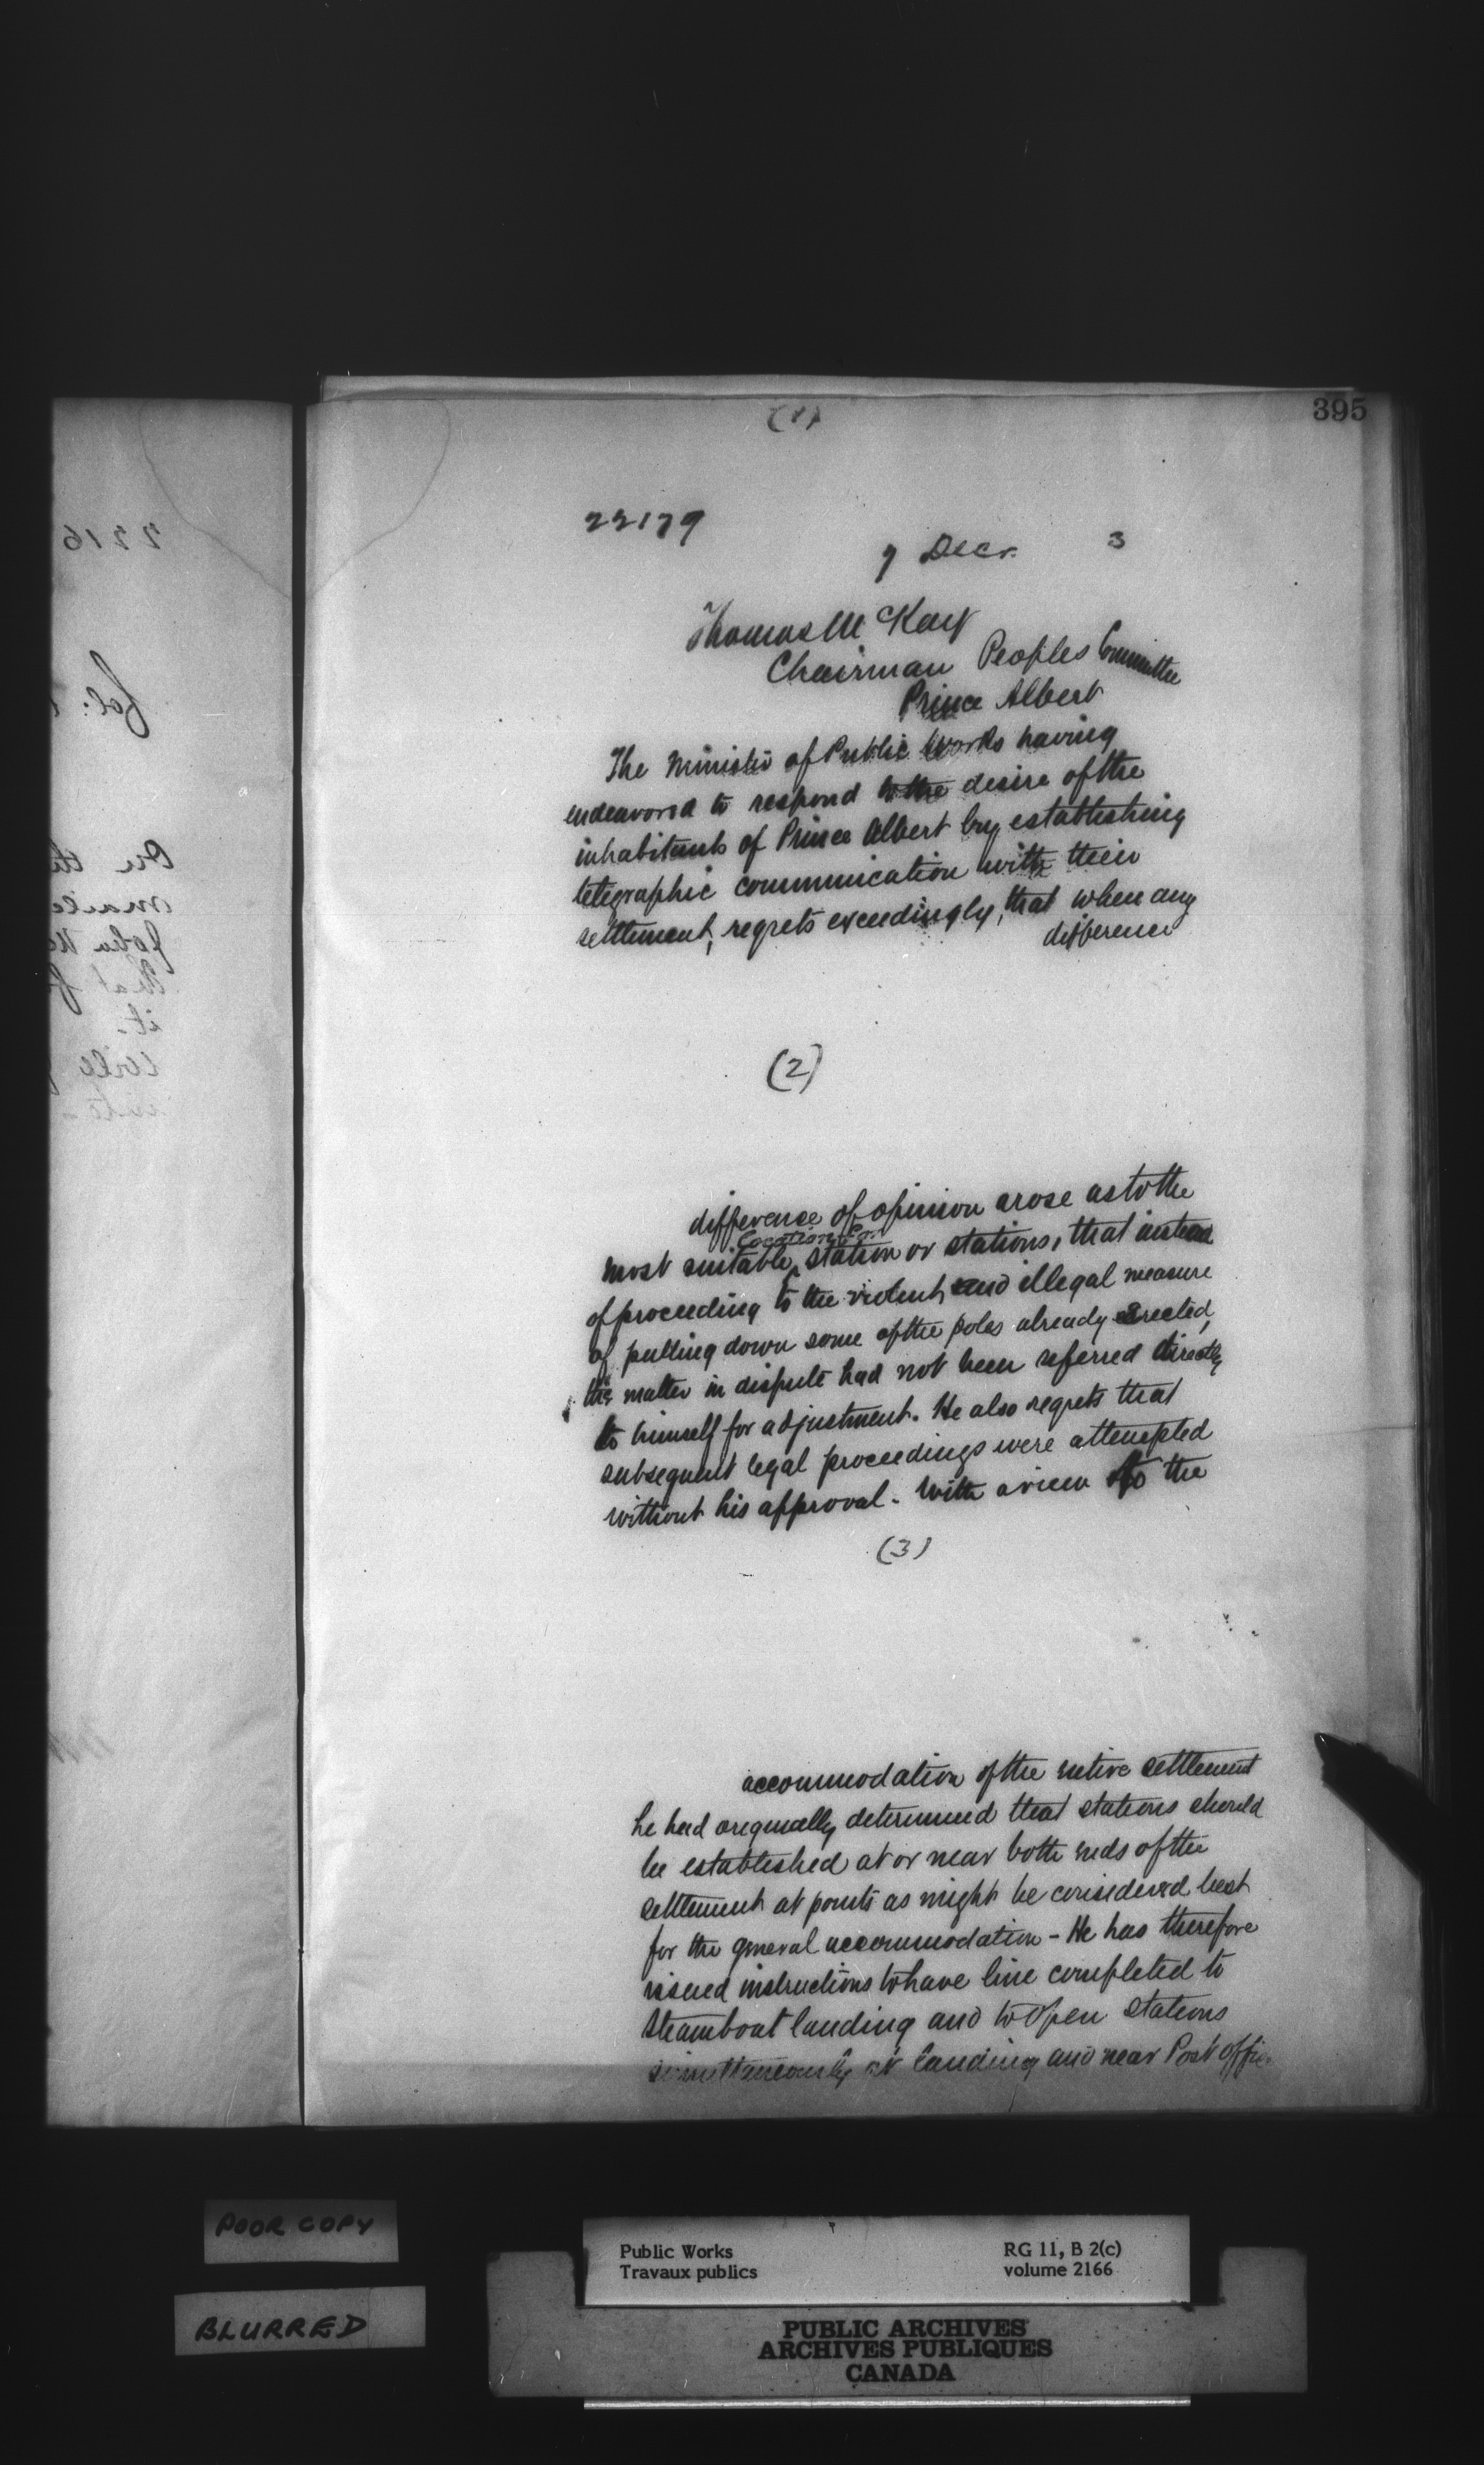 395
(1)
22179
7 Decr. 3
Thomas McKay
Chairman Peoples Committee
Prince Albert
The Minister of Public Works having
endeavored to respond to the desire of the
inhabitants of Prince Albert by establishing
telegraphic communication with their
settlement, regrets exceedingly, that when any
difference
(2)
difference of opinion arose as to the
location for
most suitable station or stations, that instead
of proceeding to the violent and illegal measure
of pulling down some of the poles already erected,
the matter in dispute had not been referred directly
to himself for adjustment. He also regrets that
subsequent legal proceedings were attempted
without his approval - With a view to the
(3)
accommodation of the entire settlement
he had originally determined that stations should
be established at or near both ends of the
settlement at points as might be considered best
for the general accommodation - He has therefore
issued instructions to have line completed to
steamboat landing and to open stations
simultaneously at landing and near Post office
POOR COPY
BLURRED
Public Works
Travaux publics
RG 11, B 2(c)
volume 2166
PUBLIC ARCHIVES
ARCHIVES PUBLIQUES
CANADA